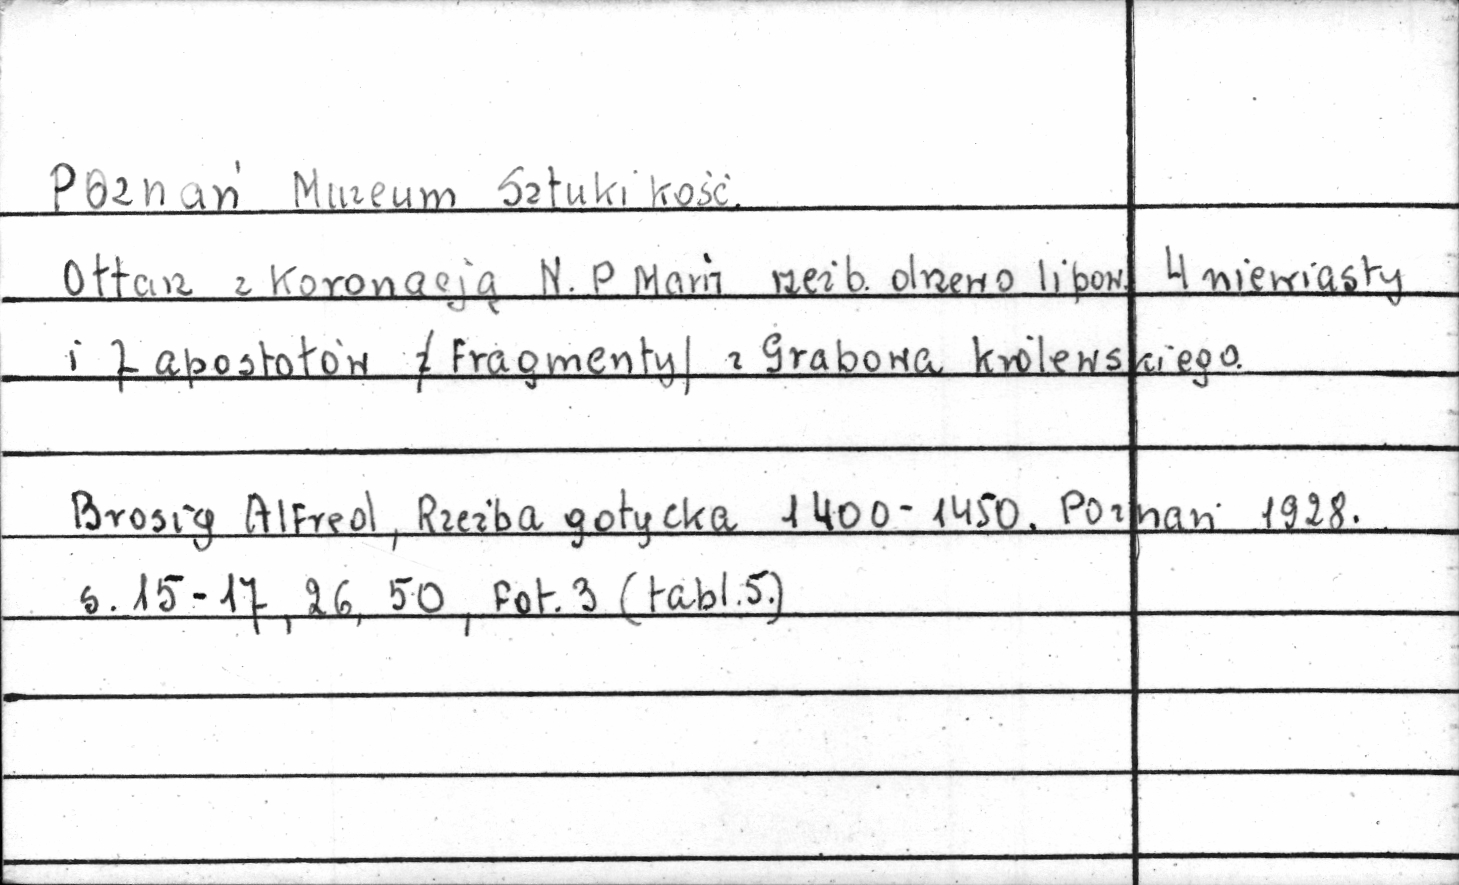 Poznań Muzeum Sztuki kość.
Ołtarz z Koronacją N. P Marii rzeźb. drzewo lipow. 4 niewiasty
i 7 apostołów /Fragmenty/ z Grabowa królewskiego.
Brosig Alfred, Rzeźba gotycka 1400-1450. Poznań 1928.
s. 15-17, 26, 50, Fot. 3 (tabl.5.)